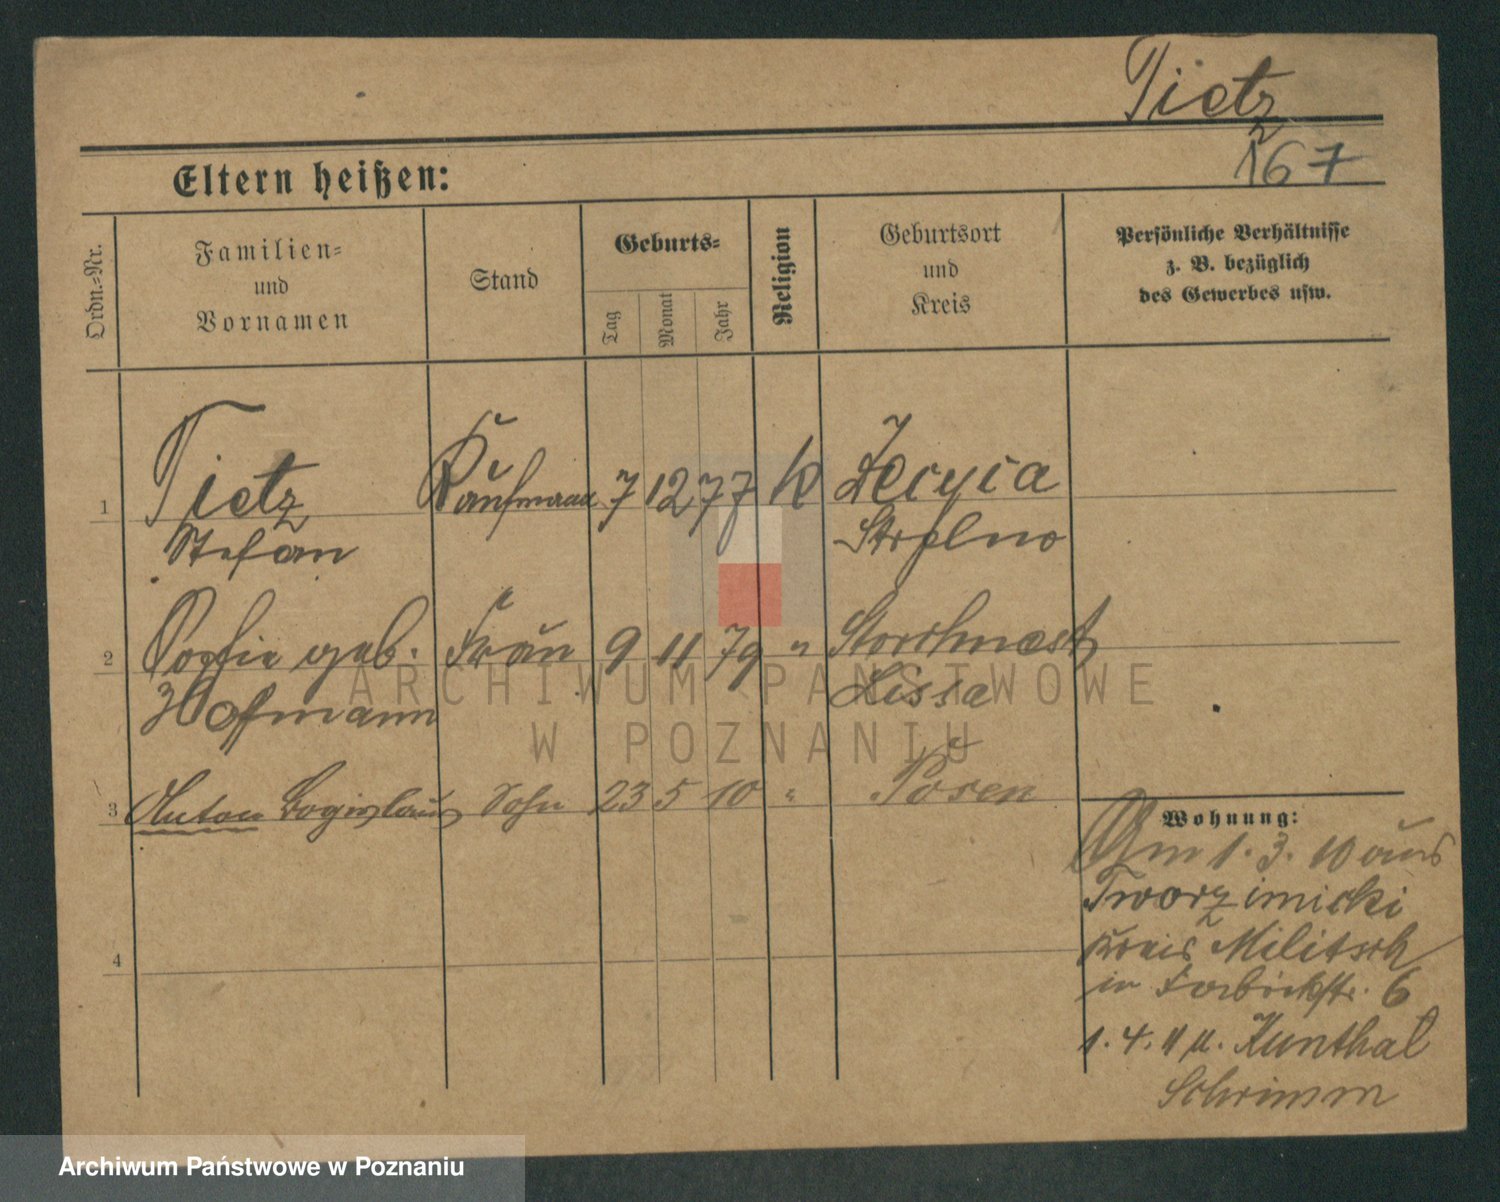 Tietz
167
Eltern heißen:
Ordn.-Nr.
Familien-
und
Vornamen
Stand
Geburts-
Tag
Monat
Jahr
Religion
Geburtsort
und
Kreis
Persönliche Verhältnisse
z. B. bezüglich
des Gewerbes usw.
1 Tietz Kaufmann 7 12 77 k
Stefan Strelno
2 Sophie geb. Frau 9 11 79 " Storchnest
Hofmann Lissa
3 Anton Bogislaus Sohn 23 5 10 " Posen
4
Wohnung:
Am 1. 3. 10 aus
Kreis Militsch
in 6
1. 4. 11 n. Kunthal
Schrimm
ARCHIWUM PAŃSTWOWE
W POZNANIU
Archiwum Państwowe w Poznaniu